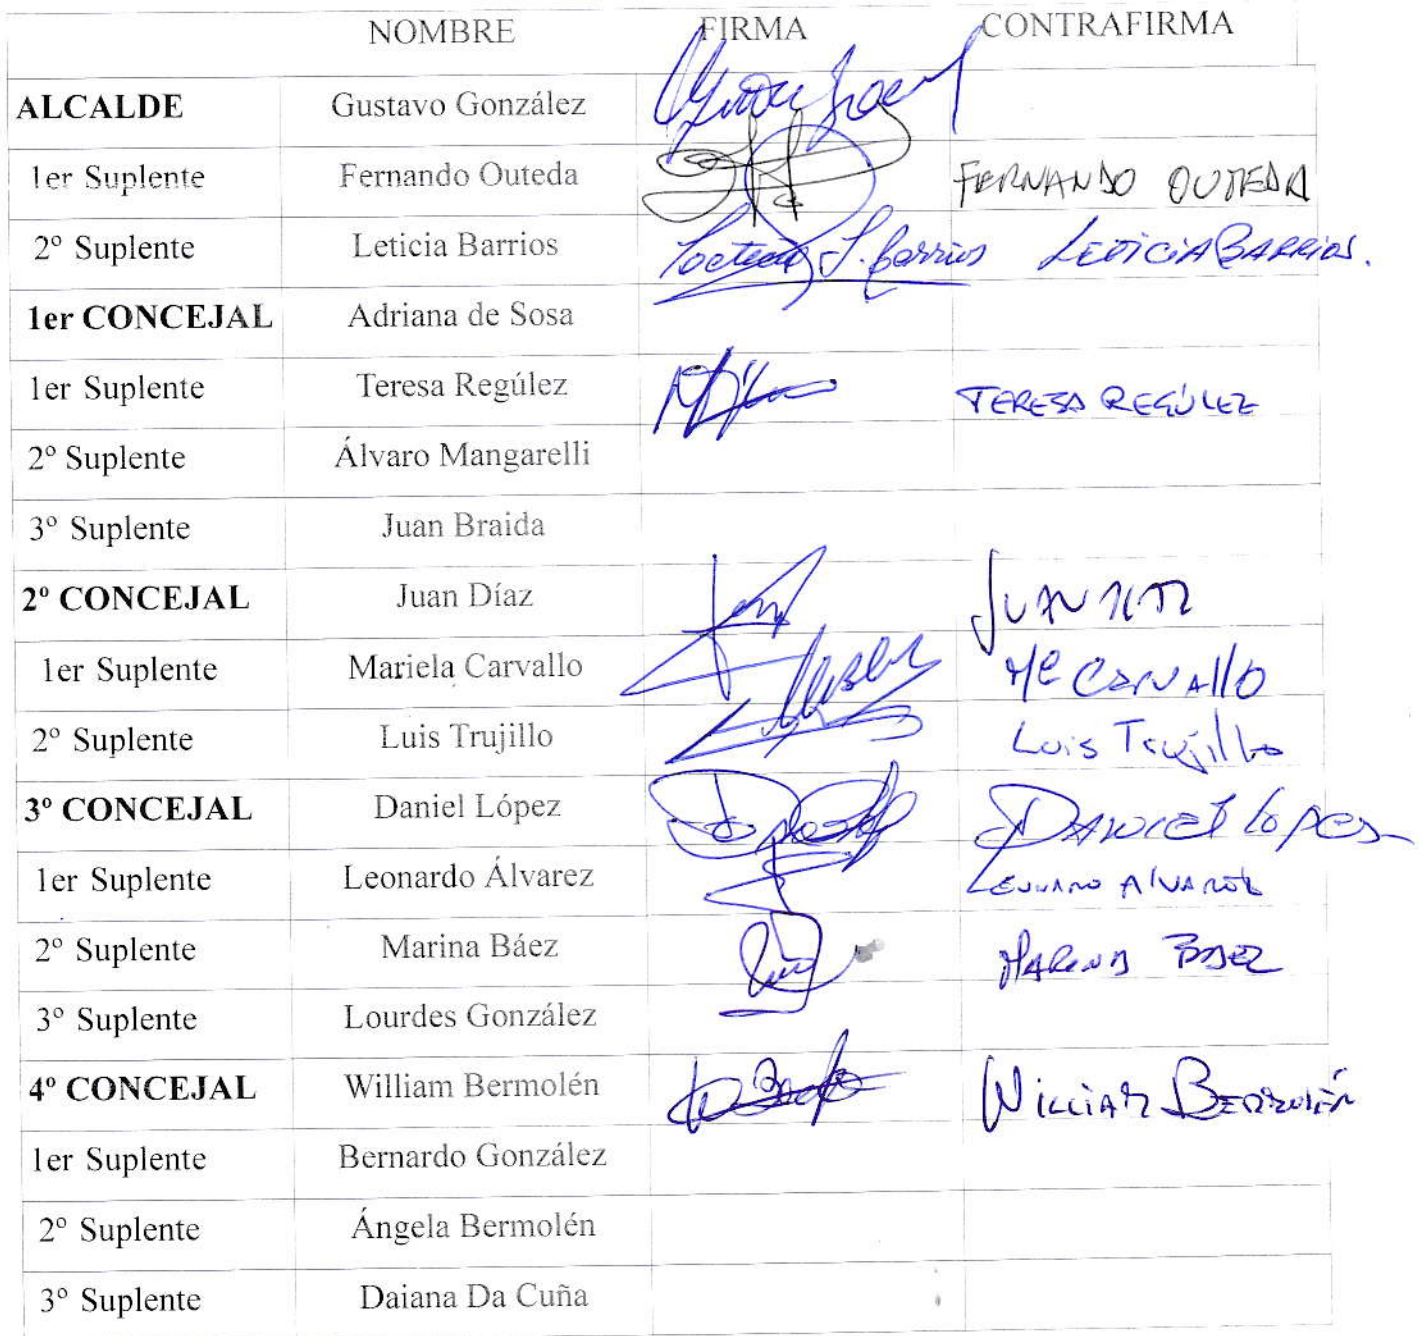 NOMBRE FIRMA CONTRAFIRMA
ALCALDE Gustavo González
1er Suplente Fernando Outeda FERNANDO OUTEDA
2º Suplente Leticia Barrios Barrios LETICIA BARRIOS.
1er CONCEJAL Adriana de Sosa
1er Suplente Teresa Regúlez TERESA REGÚLEZ
2º Suplente Álvaro Mangarelli
3º Suplente Juan Braida
2º CONCEJAL Juan Díaz JUAN
1er Suplente Mariela Carvallo CARVAllO
2º Suplente Luis Trujillo Luis Trujillo
3º CONCEJAL Daniel López DANIEL LOPES
1er Suplente Leonardo Álvarez ALVAREZ
2º Suplente Marina Báez MARINA BAEZ
3º Suplente Lourdes González
4º CONCEJAL William Bermolén WILLIAM BERMOLÉN
1er Suplente Bernardo González
2º Suplente Ángela Bermolén
3º Suplente Daiana Da Cuña